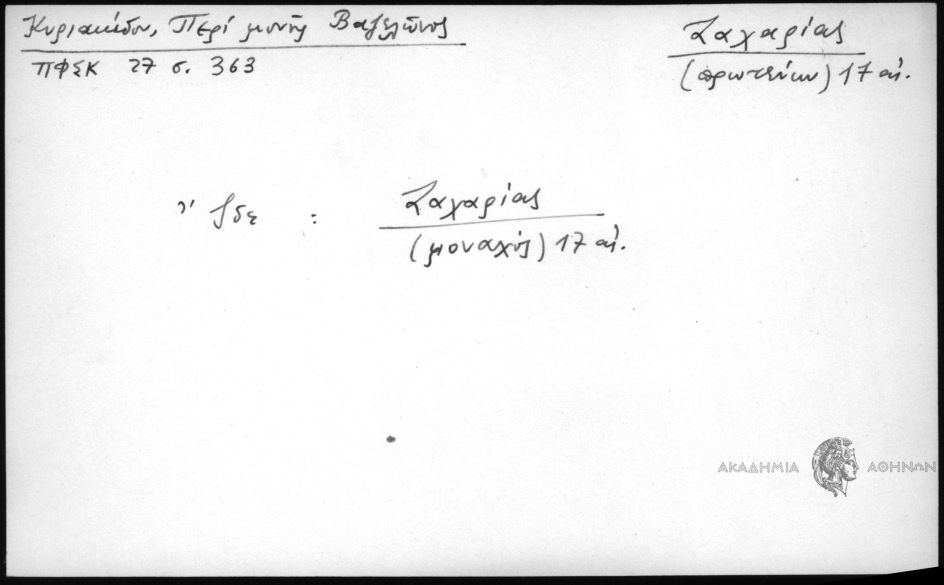 Κυριακίδου, Περί μονής Βαζελῶνος
ΠΦΣΚ 27 σ. 363
Ζαχαρίας
(πρωτεύων) 17 αἰ.
Ἴδε :
Ζαχαρίας
(μοναχός) 17 αἰ.
ΑΚΑΔΗΜΙΑ ΑΘΗΝΩΝ